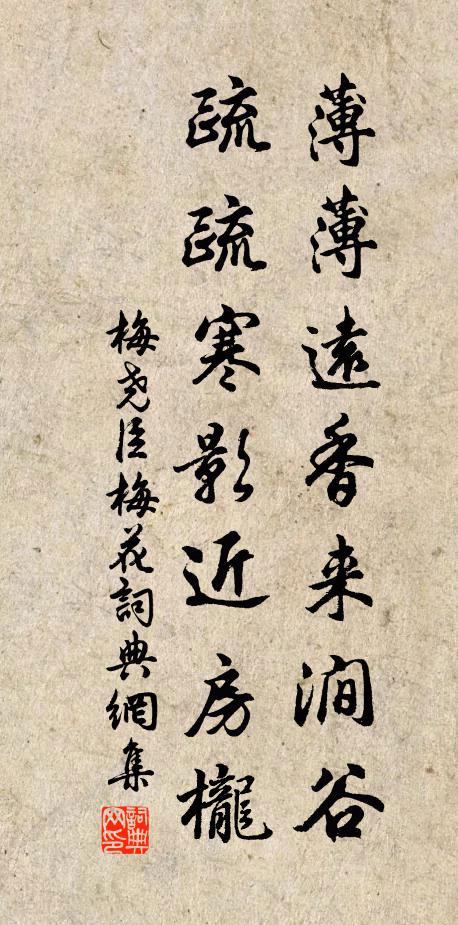 薄薄遠香来澗谷
疏疏寒影近房櫳
梅堯臣梅花詞典網集
詞典网印